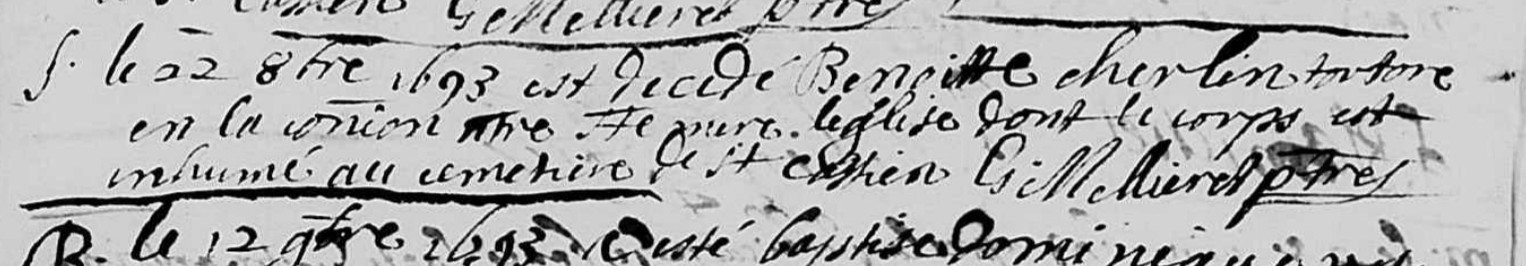 st Cassien G: Mellieret ptre
S. le 22 8bre 1693 est decedé Benoitte cherlin tortore
en la co͞nion ntre Ste mere leglise dont le corps est
inhumé au cemetiere de St Cassien G: Mellieret ptre
B. le 12 9bre 1693 a esté baptise Dominique